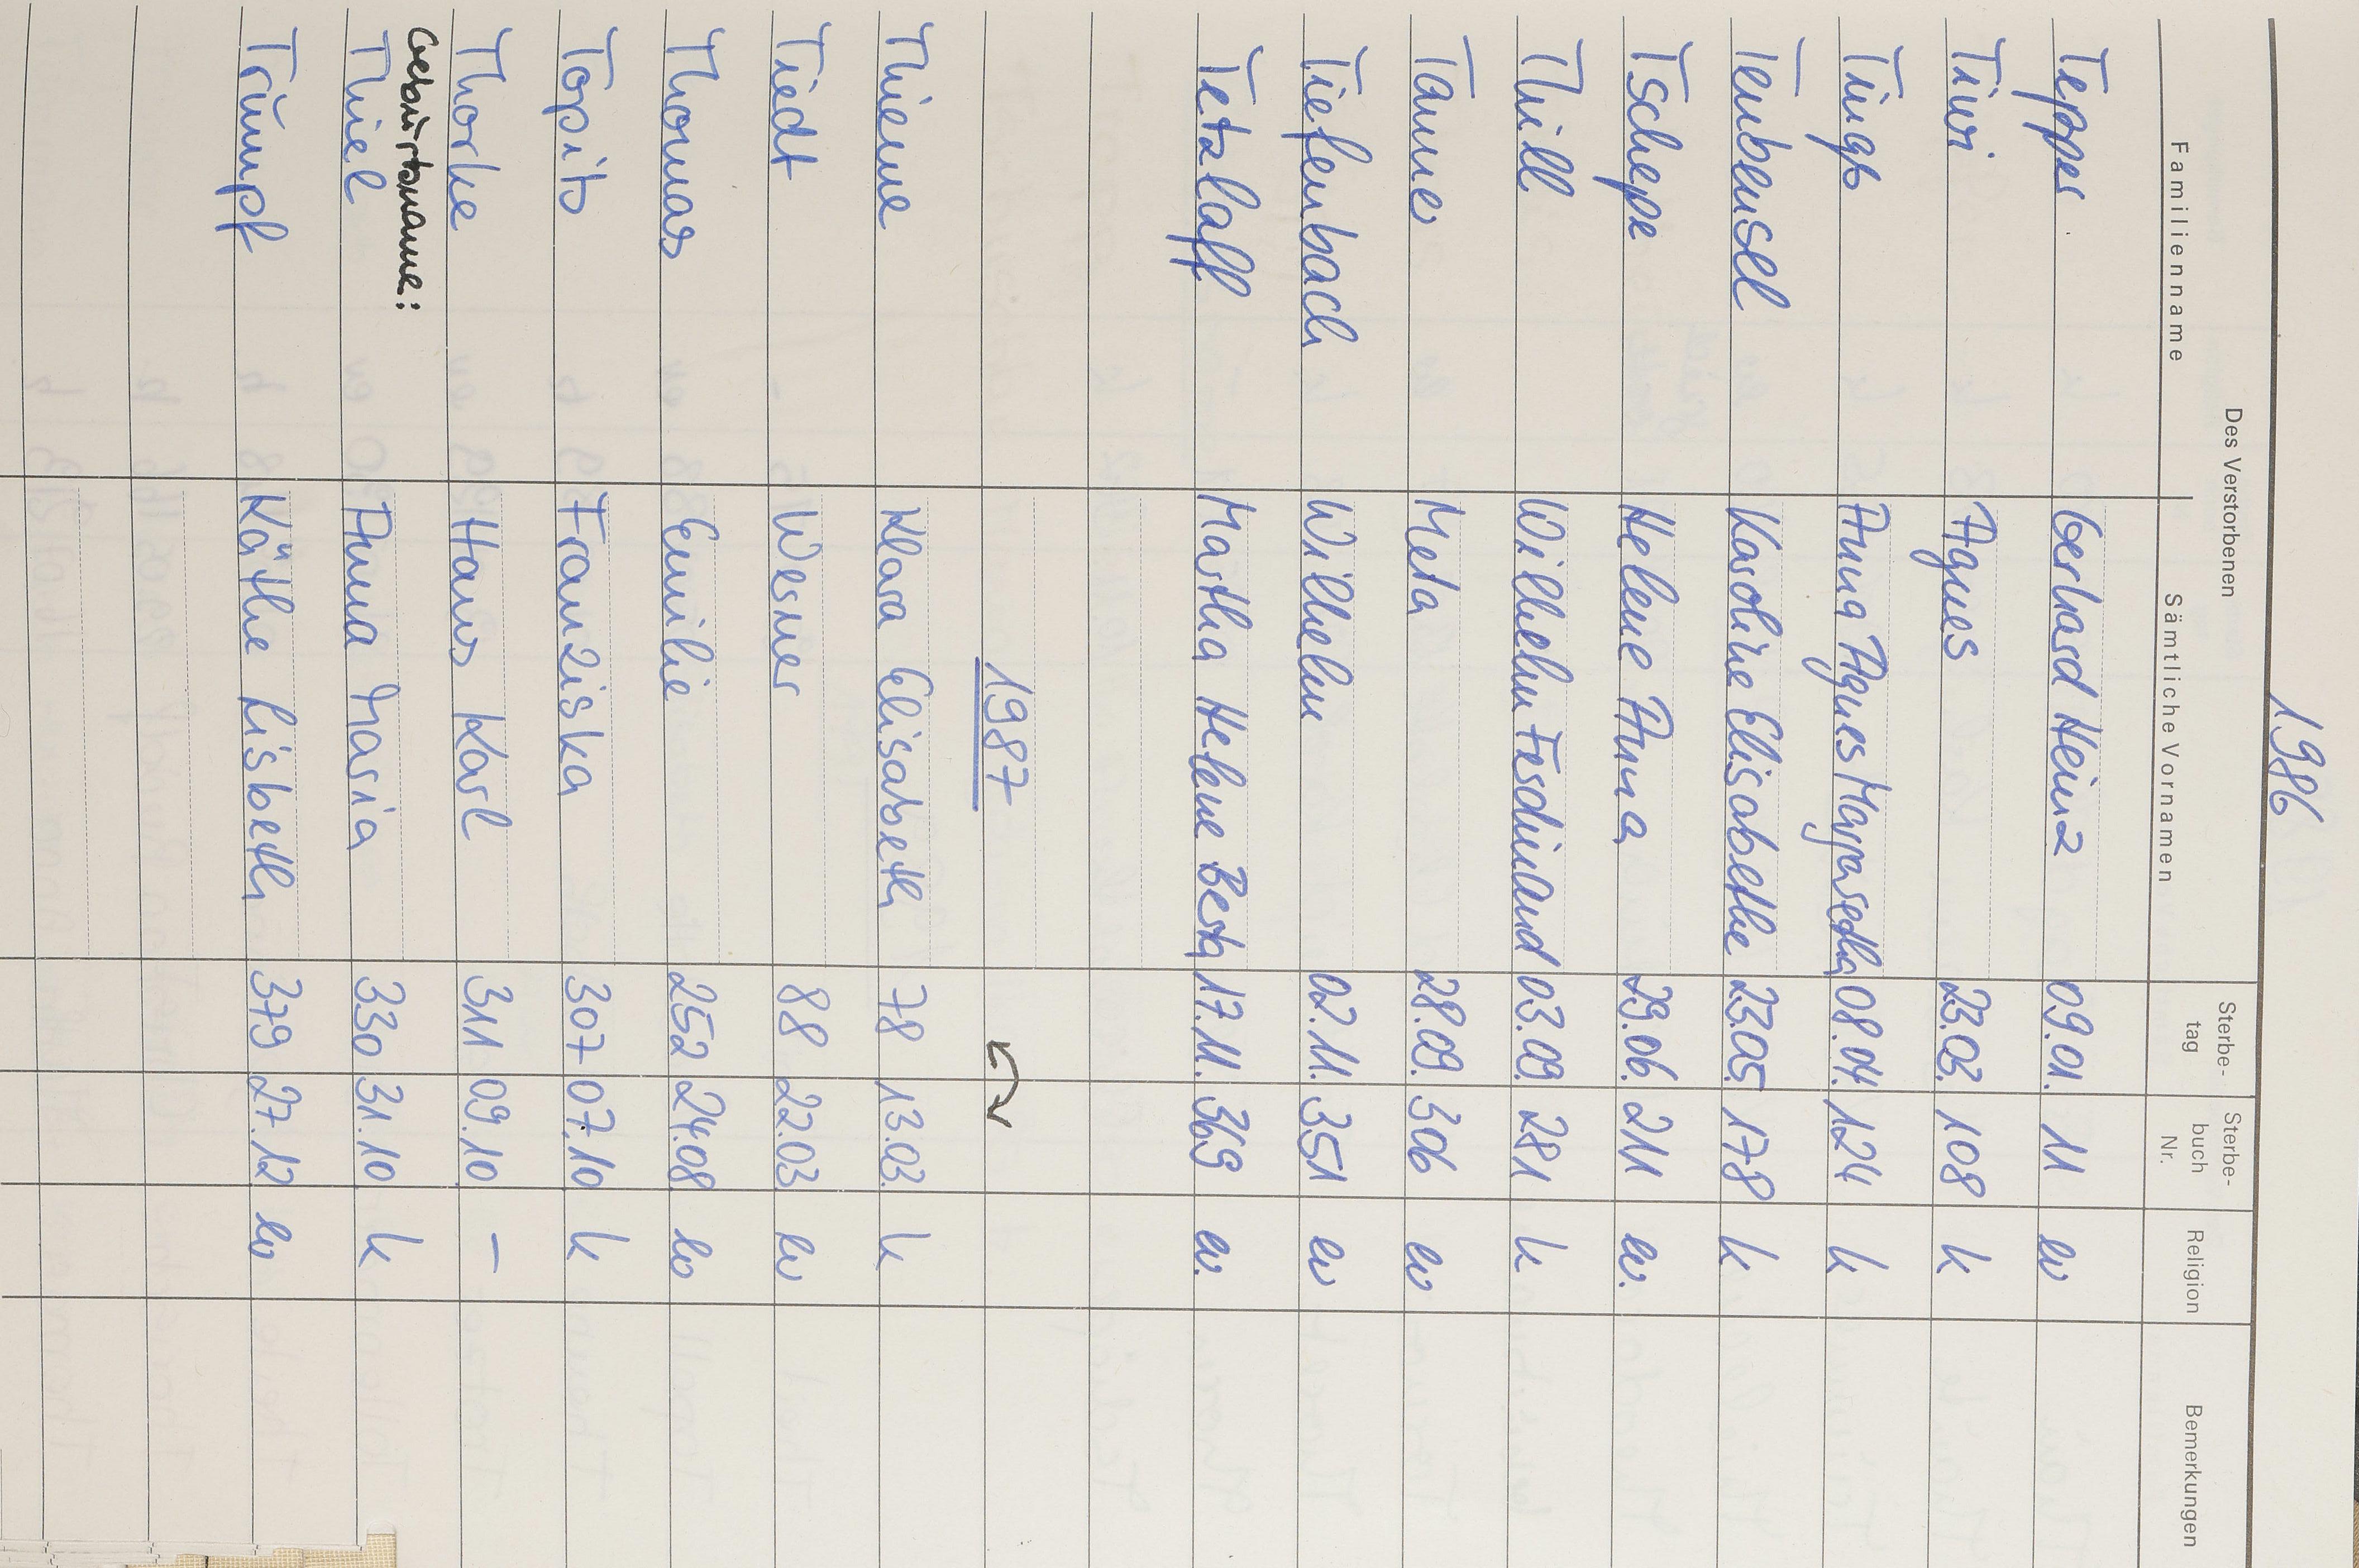 1986
Des Verstorbenen
Familienname Sämtliche Vornamen Sterbe-tag Sterbe-buch Nr. Religion Bemerkungen
Tepper Gerhard Heinz 09.01. 11 ev
Tiwi Agnes 23.03. 108 k
Tings Anna Agnes Margaretha 08.04. 124 k
Tenbensel Karoline Elisabethe 23.05. 178 k
Tscheppe Helene Anna 29.06. 211 ev.
Thill Wilhelm Ferdinand 03.09. 281 k
Tanner Meta 28.09. 306 ev
Tiefenbach Wilhelm 02.11. 351 ev
Tetzlaff Martha Helene Berta 17.11. 369 ev.
1987
Thieme Klara Elisabeth 78 13.03. k
Tiedt Werner 88 22.03 ev
Thomas Emilie 252 24.08 ev
Topits Franziska 307 07.10 k
Thorke Hans Karl 311 09.10 –
Geburtsname:
Thiel Anna Maria 330 31.10 k
Trümpf Käthe Lisbeth 379 27.12 ev